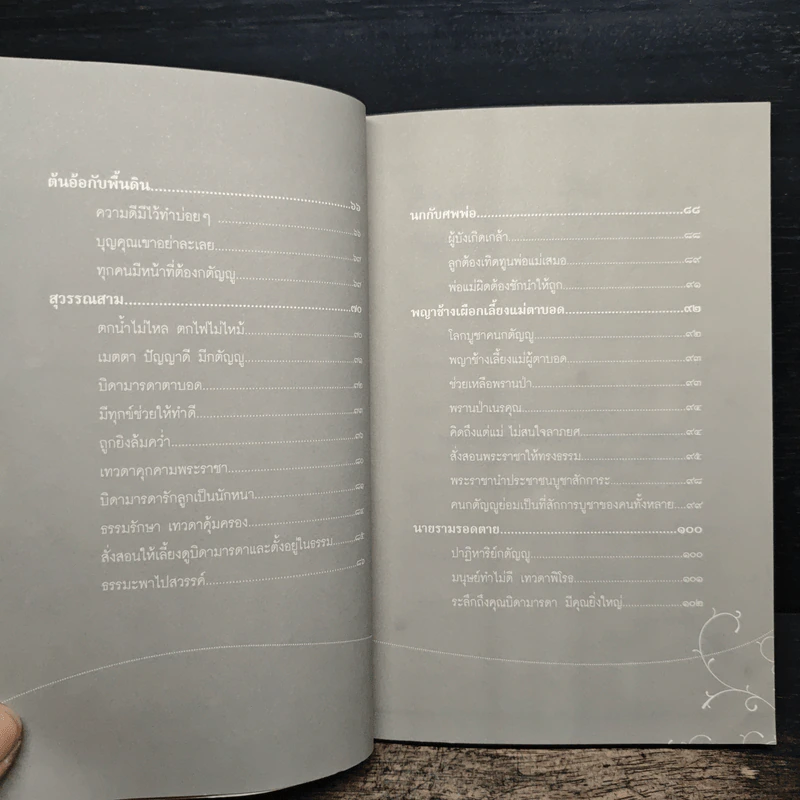 ต้นอ้อกับพื้นดิน ๖๖
ความดีมีไว้ทำบ่อยๆ ๖๖
บุญคุณเขาอย่าละเลย
ทุกคนมีหน้าที่ต้องกตัญญู
สุวรรณสาม ๗๐
ตกน้ำไม่ไหล ตกไฟไม่ไหม้ ๗๐
เมตตา ปัญญาดี มีกตัญญู ๗๑
บิดามารดาตาบอด ๗๒
มีทุกข์ช่วยให้ทำดี
ถูกยิงล้มคว่ำ
เทวดาคุกคามพระราชา ๘๐
บิดามารดารักลูกเป็นนักหนา
ธรรมรักษา เทวดาคุ้มครอง ๘๔
สั่งสอนให้เลี้ยงดูบิดามารดาและตั้งอยู่ในธรรม ๘๕
ธรรมะพาไปสวรรค์
นกกับศพพ่อ ๘๘
ผู้บังเกิดเกล้า ๘๘
ลูกต้องเทิดทูนพ่อแม่เสมอ ๘๙
พ่อแม่ผิดต้องชักนำให้ถูก ๙๑
พญาช้างเผือกเลี้ยงแม่ตาบอด ๙๒
โลกบูชาคนกตัญญู ๙๒
พญาช้างเลี้ยงแม่ผู้ตาบอด ๙๓
ช่วยเหลือพรานป่า ๙๓
พรานป่าเนรคุณ ๙๔
คิดถึงแต่แม่ ไม่สนใจลาภยศ ๙๔
สั่งสอนพระราชาให้ทรงธรรม ๙๕
พระราชานำประชาชนบูชาสักการะ ๙๘
คนกตัญญูย่อมเป็นที่สักการบูชาของคนทั้งหลาย ๙๙
นายรามรอดตาย ๑๐๐
ปาฏิหาริย์กตัญญู ๑๐๐
มนุษย์ทำไม่ดี เทวดาพิโรธ ๑๐๑
ระลึกถึงคุณบิดามารดา มีคุณยิ่งใหญ่ ๑๐๒